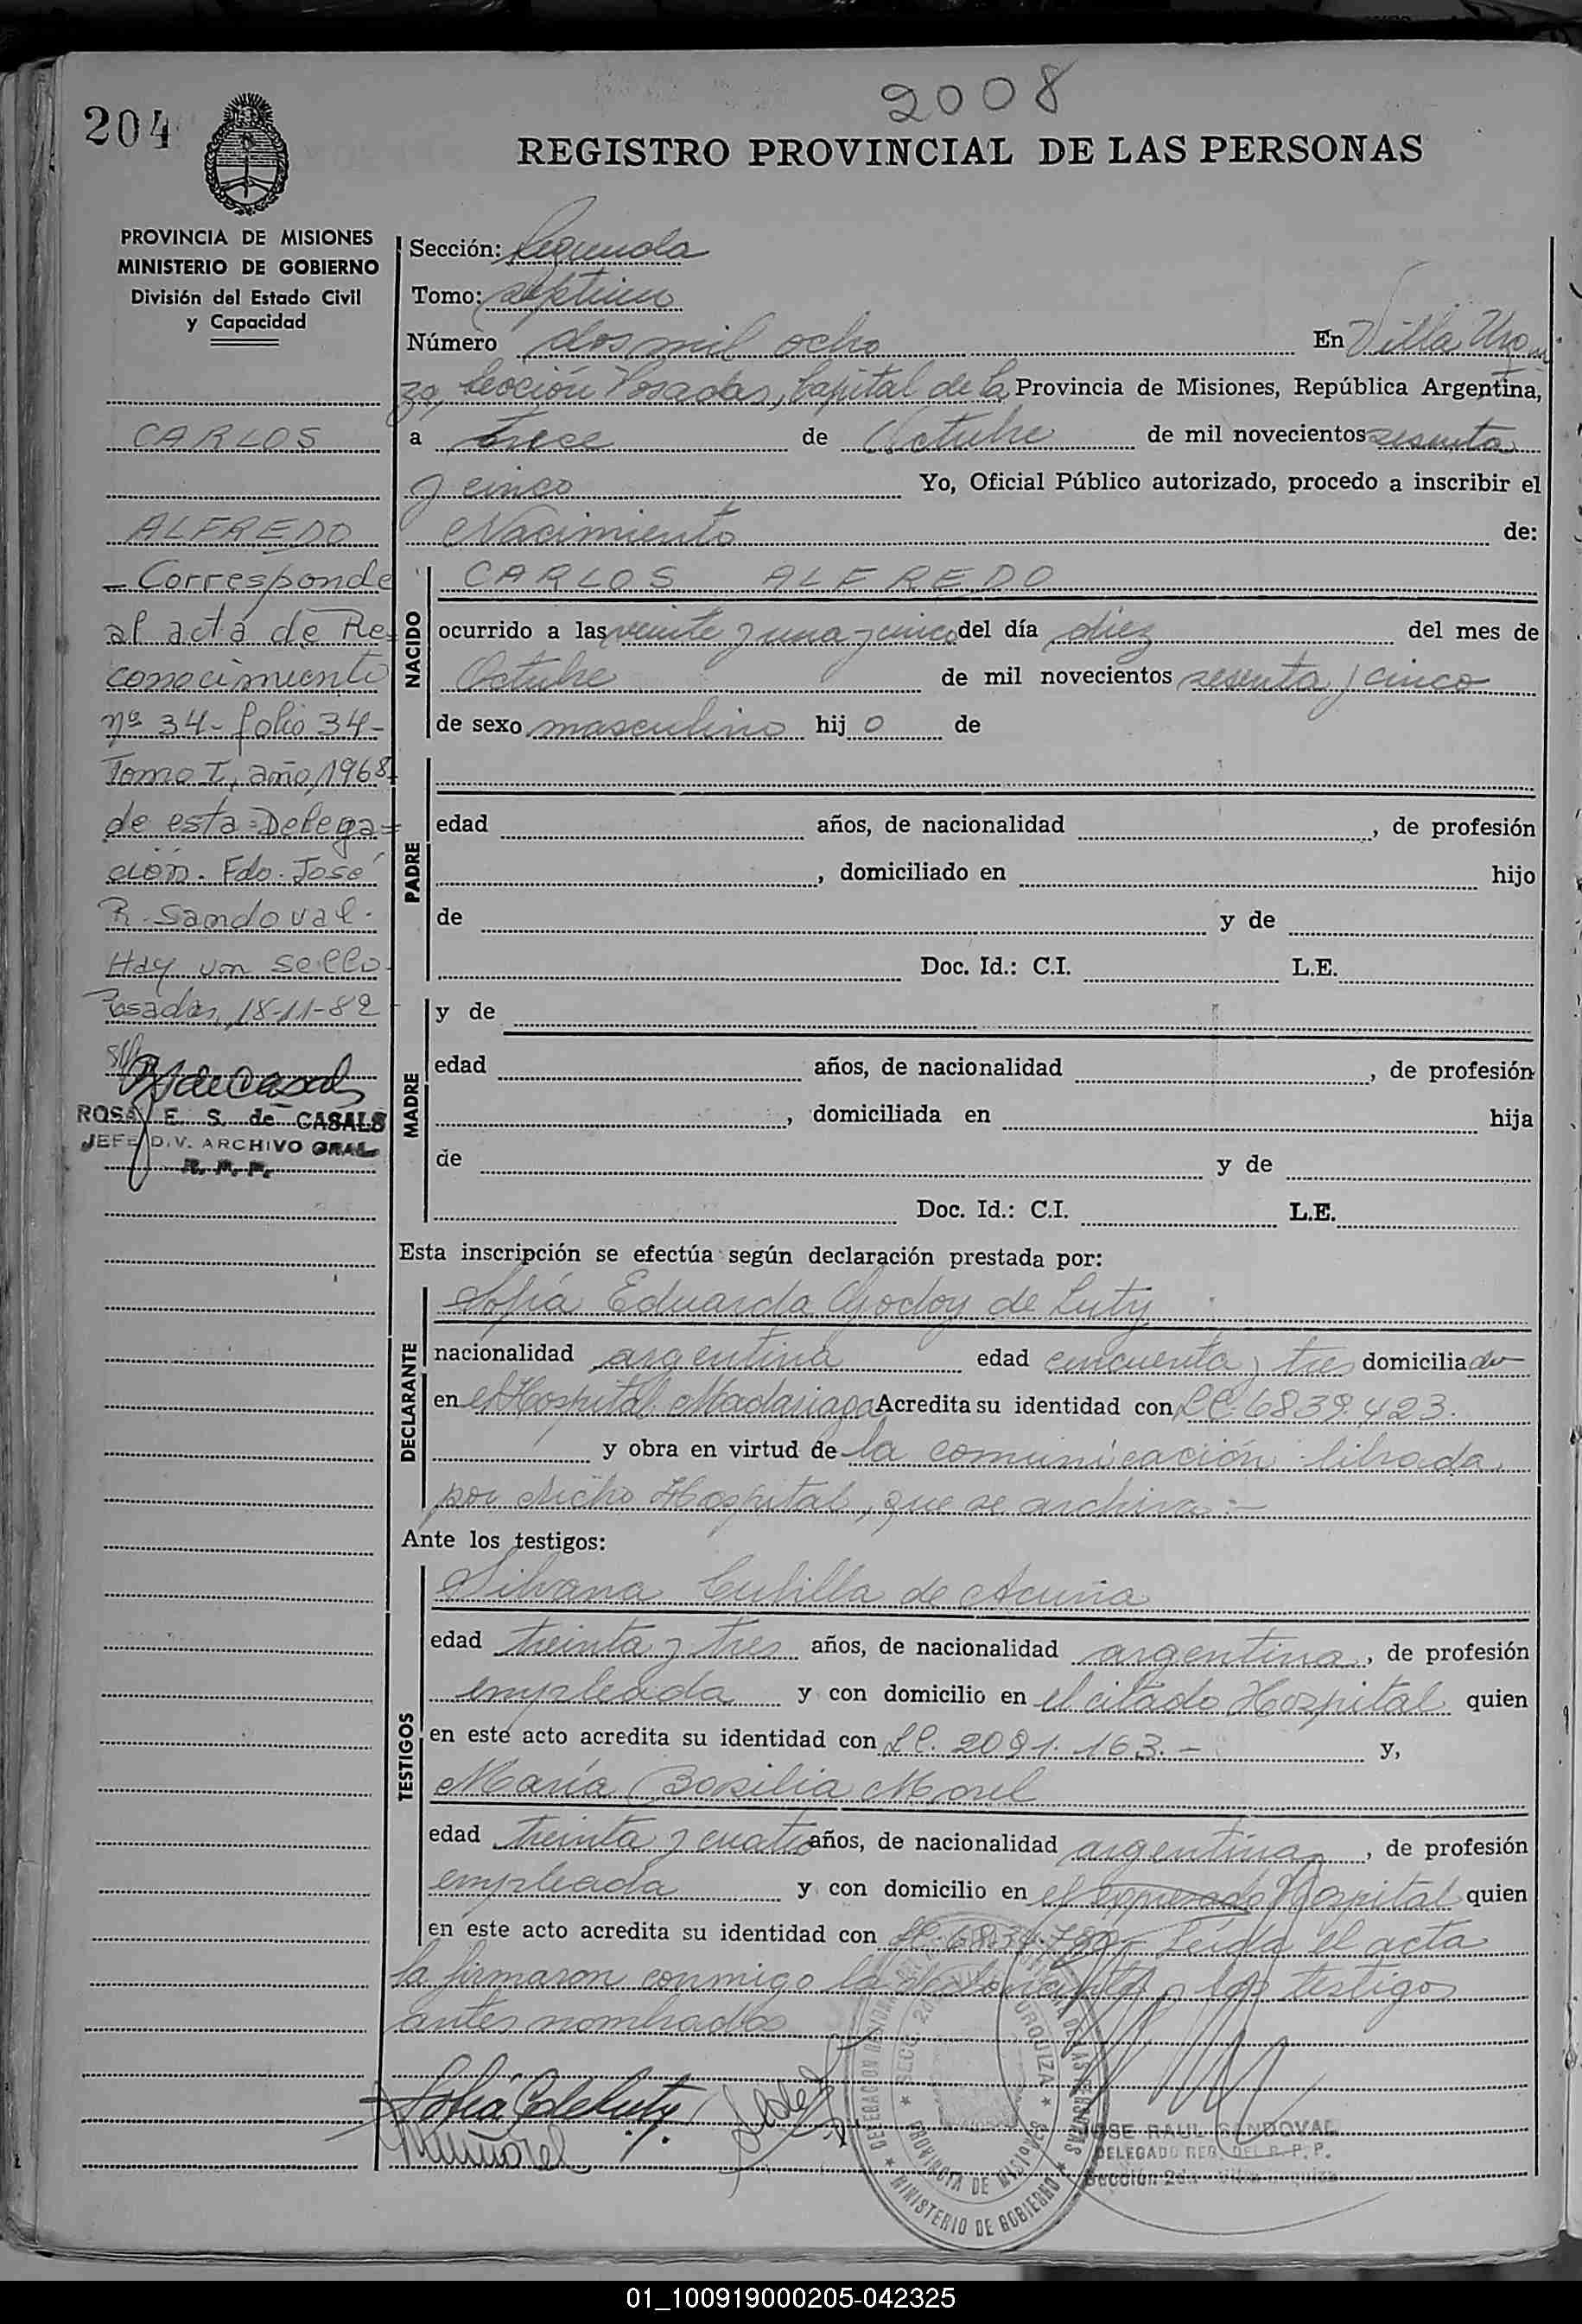 2008
204
REGISTRO PROVINCIAL DE LAS PERSONAS
PROVINCIA DE MISIONES
MINISTERIO DE GOBIERNO
División del Estado Civil
y Capacidad
CARLOS
ALFREDO
- Corresponde
al acta de Re-
conocimiento
nº 34- folio 34-
Tomo I, año 1968
de esta Delega=
ción. Fdo. José
R. Sandoval.
Hay un sello
Posadas, 18-11-82
ROSA E. S. de CASALS
JEFE DIV. ARCHIVO GRAL.
R. P. P.
Sección: Segunda
Tomo: septimo
Número dos mil ocho En Villa Urqui
za, Sección Posadas, Capital de la Provincia de Misiones, República Argentina,
a trece de Octubre de mil novecientos sesenta
y cinco Yo, Oficial Público autorizado, procedo a inscribir el
Nacimiento de:
NACIDO
CARLOS ALFREDO
ocurrido a las veinte y una y cinco del día diez del mes de
Octubre de mil novecientos sesenta y cinco
de sexo masculino hijo de
PADRE
edad años, de nacionalidad , de profesión
, domiciliado en hijo
de y de
Doc. Id.: C.I. L.E.
MADRE
y de
edad años, de nacionalidad , de profesión
, domiciliada en hija
de y de
Doc. Id.: C.I. L.E.
Esta inscripción se efectúa según declaración prestada por:
DECLARANTE
Sofía Eduarda Godoy de Luty
nacionalidad argentina edad cincuenta y tres domiciliada
en el Hospital Madariaga Acredita su identidad con LC. 6839.423.
y obra en virtud de la comunicación librada
por dicho Hospital, que se archiva.-
Ante los testigos:
TESTIGOS
Silvana Cubilla de Acuña
edad treinta y tres años, de nacionalidad argentina, de profesión
empleada y con domicilio en el citado Hospital quien
en este acto acredita su identidad con LC. 2091.163.- y,
María Basilia Morel
edad treinta y cuatro años, de nacionalidad argentina, de profesión
empleada y con domicilio en el expresado Hospital quien
en este acto acredita su identidad con LC. Leída el acta
la firmaron conmigo la declarante y los testigos
antes nombrados
Sofía G de Luty
JOSE RAUL SANDOVAL
DELEGADO REG. DEL R. P. P.
Sección 2da - Villa Urquiza
SECC. 2da URQUIZA
PROVINCIA DE MISIONES
MINISTERIO DE GOBIERNO
01_100919000205-042325